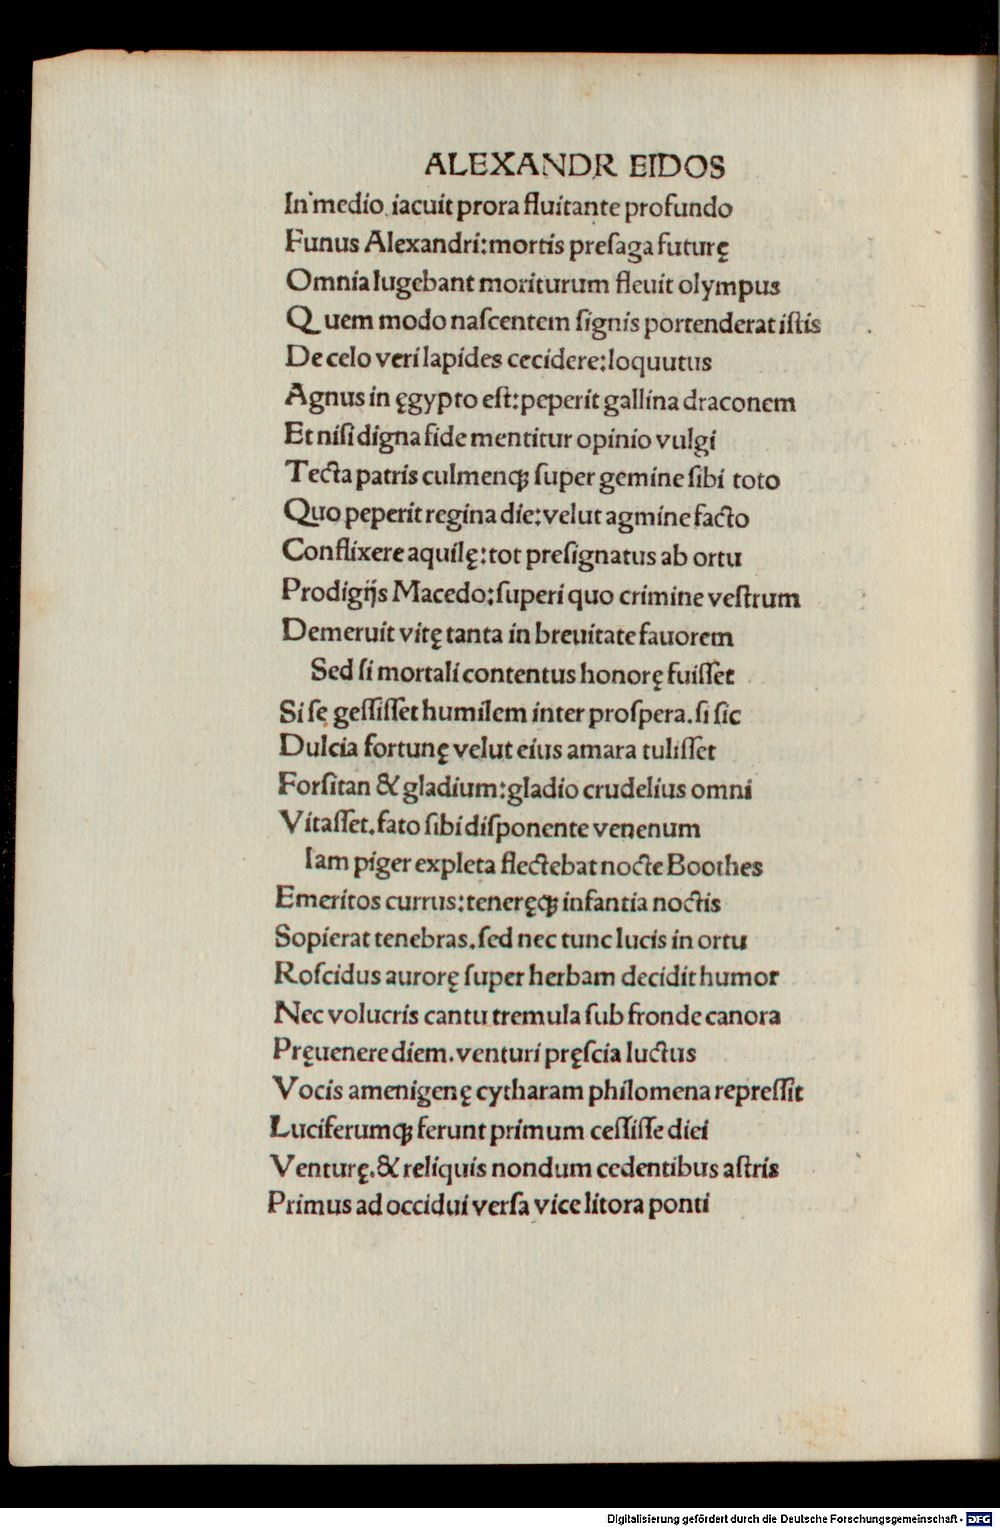 ALEXANDR EIDOS
In medio iacuit prora fluitante profundo
Funus Alexandri:mortis preſaga futurę
Omnia lugebant moriturum fleuit olympus
Quem modo naſcentem ſignis portenderat iſtis
De celo veri lapides cecidere:loquutus
Agnus in ęgypto eſt:peperit gallina draconem
Et niſi digna fide mentitur opinio vulgi
Tecta patris culmenqꝫ ſuper gemine ſibi toto
Quo peperit regina die:velut agmine facto
Conflixere aquilę:tot preſignatus ab ortu
Prodigijs Macedo:ſuperi quo crimine veſtrum
Demeruit vitę tanta in breuitate fauorem
Sed ſi mortali contentus honorę fuiſſet
Si ſę geſſiſſet humilem inter proſpera. ſi ſic
Dulcia fortunę velut eius amara tuliſſet
Forſitan & gladium:gladio crudelius omni
Vitaſſet. fato ſibi diſponente venenum
Iam piger expleta flectebat nocte Boothes
Emeritos currus:teneręqꝫ infantia noctis
Sopierat tenebras. ſed nec tunc lucis in ortu
Roſcidus aurorę ſuper herbam decidit humor
Nec volucris cantu tremula ſub fronde canora
Pręuenere diem. venturi pręſcia luctus
Vocis amenigenę cytharam philomena repreſſit
Luciferumqꝫ ferunt primum ceſſiſſe diei
Venturę. & reliquis nondum cedentibus aſtris
Primus ad occidui verſa vice litora ponti
Digitalisierung gefördert durch die Deutsche Forschungsgemeinschaft - DFG